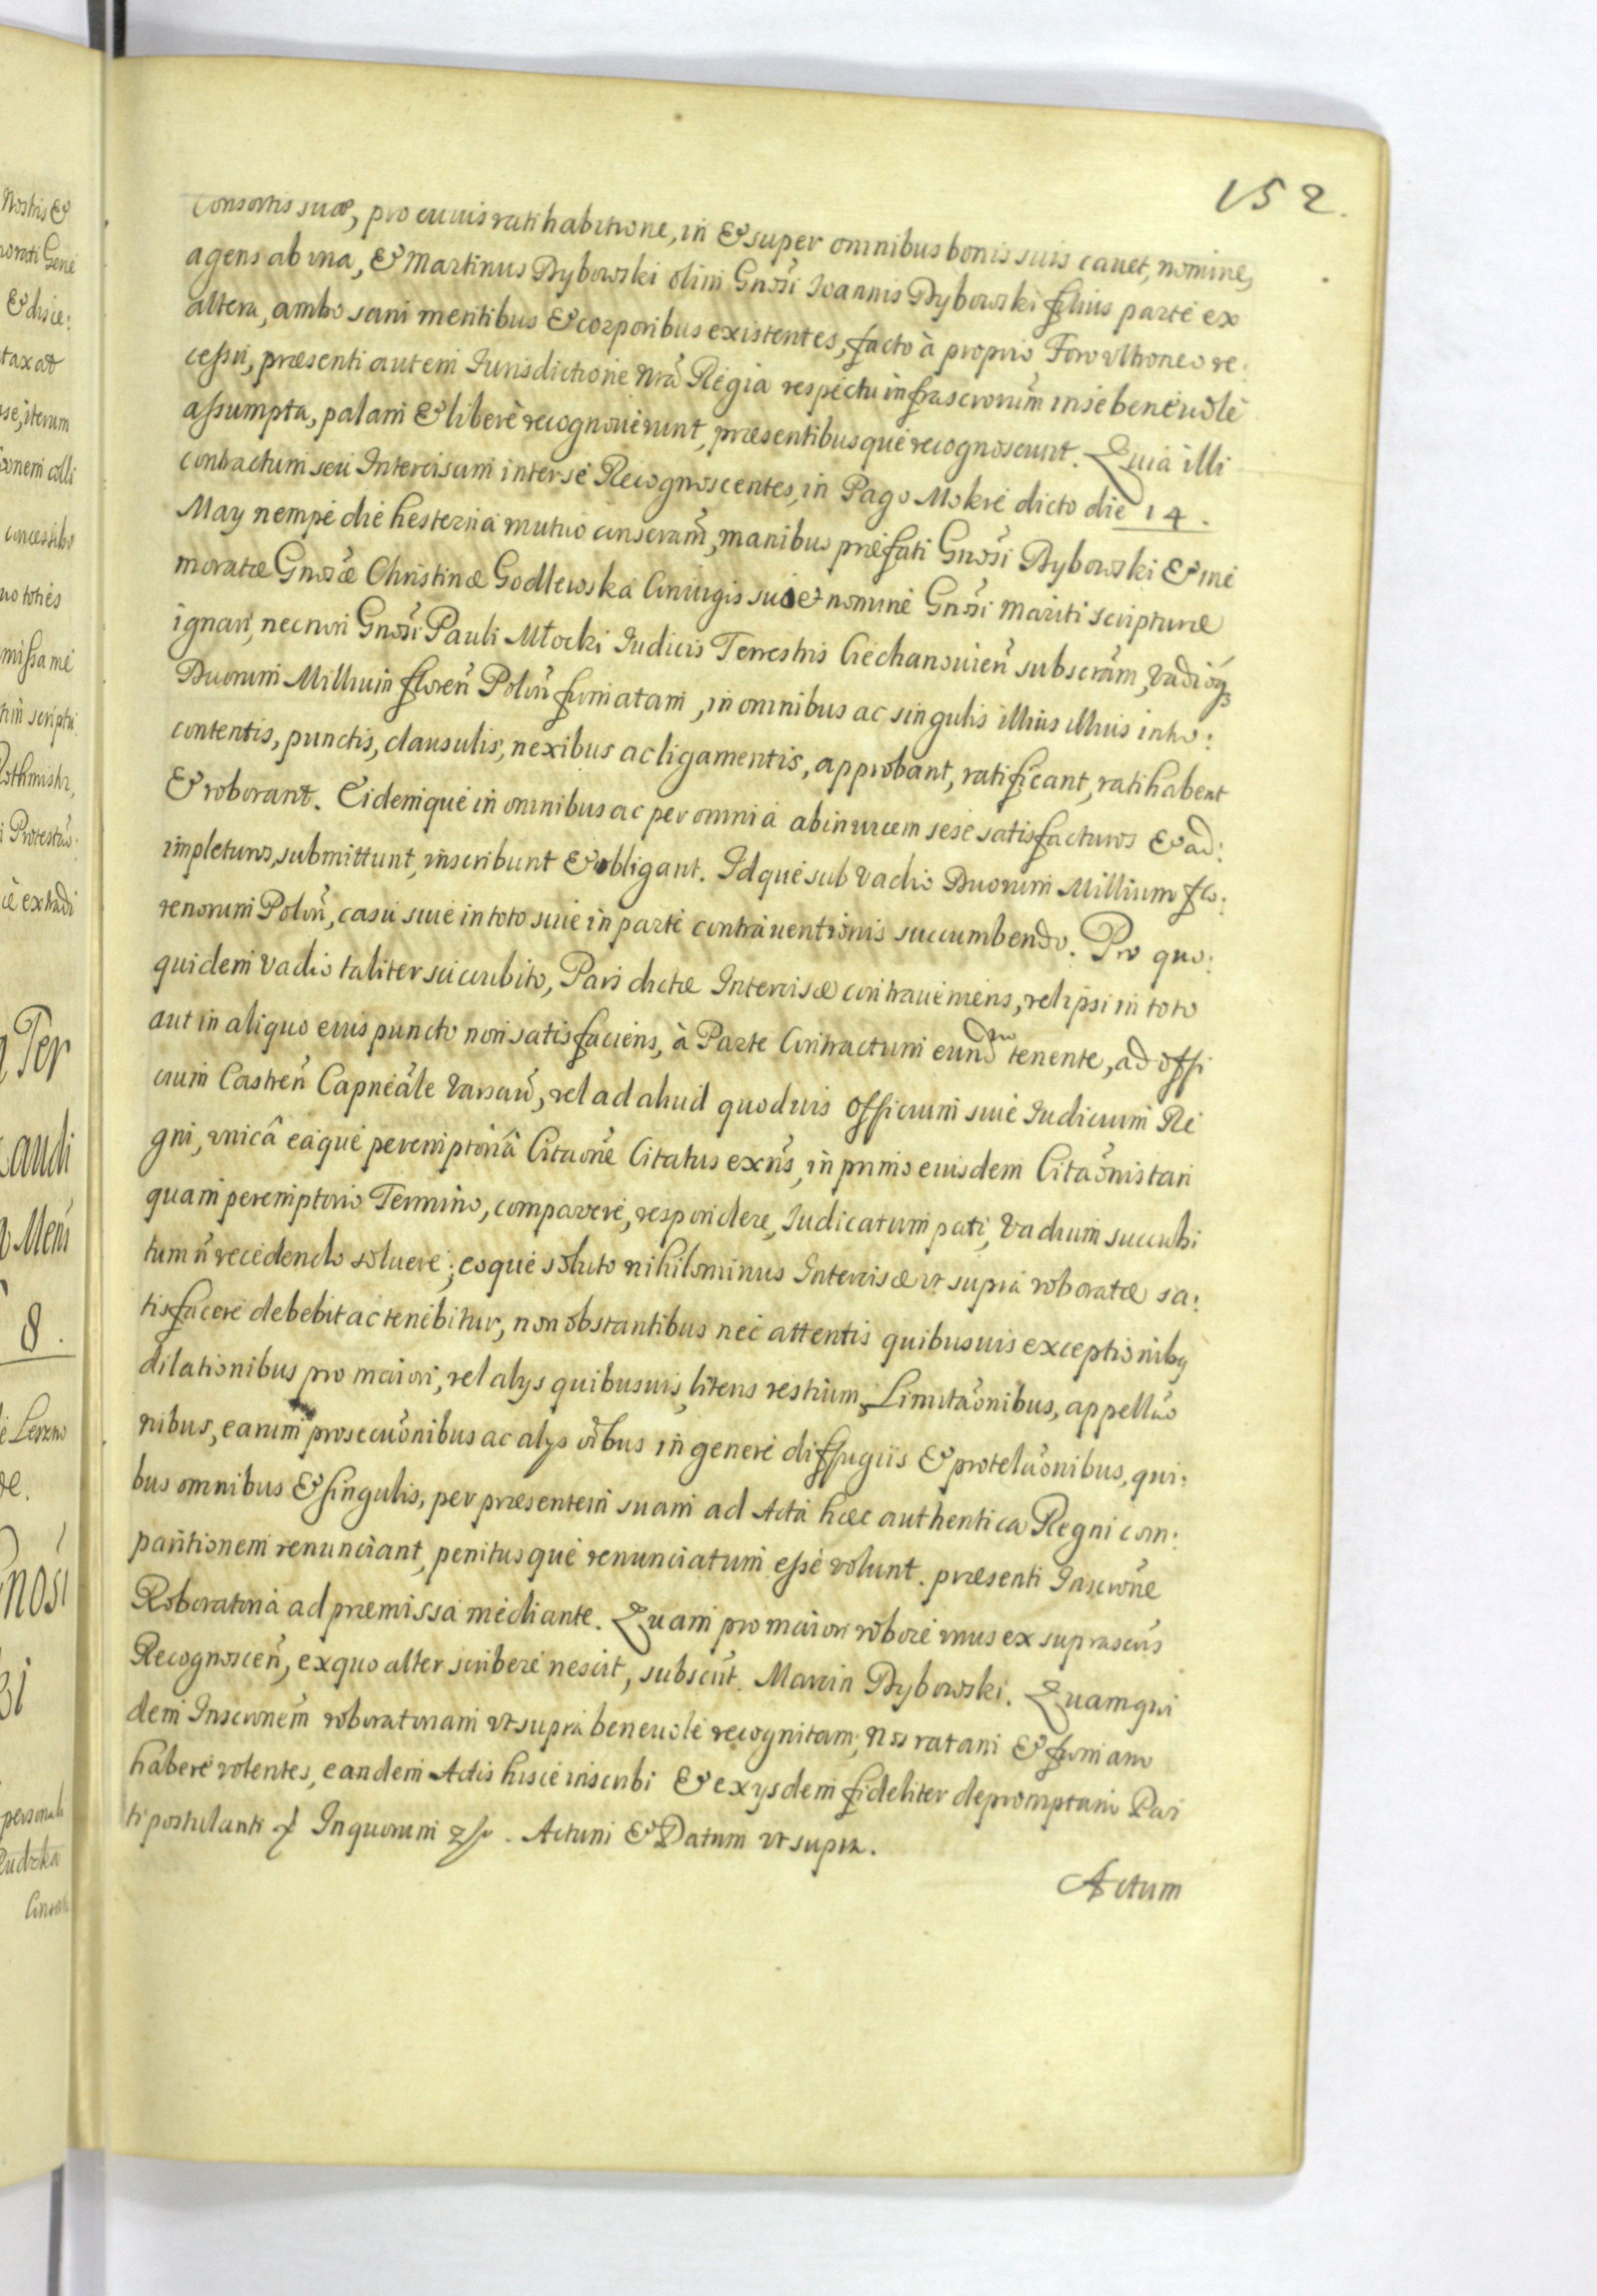 152.
Consortis suæ, pro cuius ratihabitione, in & super omnibus bonis suis cauet, nomine,
agens ab vna, & Martinus Dybowski olim Gnosi Ioannis Dybowski filius parte ex
altera, ambo sani mentibus & corporibus existentes, facto à proprio Foro vltroneo re:
cessu, præsenti autem Iurisdictione Nrã Regia respectu infrascrorum in se beneuole
assumpta, palam & liberè recognouerunt, præsentibusque recognoscunt. Quia illi
contractum seu Intercisam inter se Recognoscentes, in Pago Mokre dicto die 14.
May nempe die hesterna mutuo conscram, manibus præfati Gnosi Dybowski & me
moratæ Gnosæ Christinæ Godlewska Coniugis suæ & nomine Gnosi Mariti scripturæ
ignari, necnon Gnosi Pauli Młocki Iudicis Terrestris Ciechanouien subscram, Vadioq3
Duorum Millium floren Polon firmatam, in omnibus ac singulis illius illius intro:
contentis, punctis, clausulis, nexibus ac ligamentis, approbant, ratificant, ratihabent
& roborant. Eidemque in omnibus ac per omnia abinuicem sese satisfacturos & ad:
impleturos, submittunt, inscribunt & obligant. Idque sub vadio Duorum Millium flo:
renorum Polon, casu siue in toto siue in parte contrauentionis succumbendo. Pro quo:
quidem vadio taliter succubito, Pars dictæ Intercisæ contraueniens, vel ipsi in toto
aut in aliquo eius puncto non satisfaciens, à Parte Contractum eund tenente, ad offi
cium Castren Capneale Varsau, vel ad aliud quoduis Officium siue Iudicium Re
gni, vnicâ eaque peremptoriâ Citaõne Citatus exns, in primo eiusdem Citaõnis tan
quam peremptorio Termino, comparere, respondere, Iudicatum pati, Vadium succubi
tum ñ recedendo soluere; eoque soluto nihilominus Intercisæ vt supra roboratæ sa:
tisfacere debebit ac tenebitur, non obstantibus nec attentis quibusuis exceptionibq
dilationibus pro maiori, vel alys quibusuis, literis restium, Limitaõnibus, appellaõ
nibus, earum prosecuõnibus ac alys oibus in genere diffugiis & protelaõnibus, qui:
bus omnibus & singulis, per præsentem suam ad Acta hæc authentica Regni com:
paritionem renunciant, penitusque renunciatum esse volunt. præsenti Inscrone
Roboratoria ad præmissa mediante. Quam pro maiori robore vnus ex suprascris
Recognoscen, exquo alter scribere nescit, subscrit. Marcin Dybowski. Quamqui
dem Inscronem roboratoriam vt supra beneuole recognitam, Nos ratam & firmam
habere volentes, eandem Actis hisce inscribi & ex ysdem fideliter depromptam Par
ti postulanti Inquorum Actum & Datum vt supra.
Actum